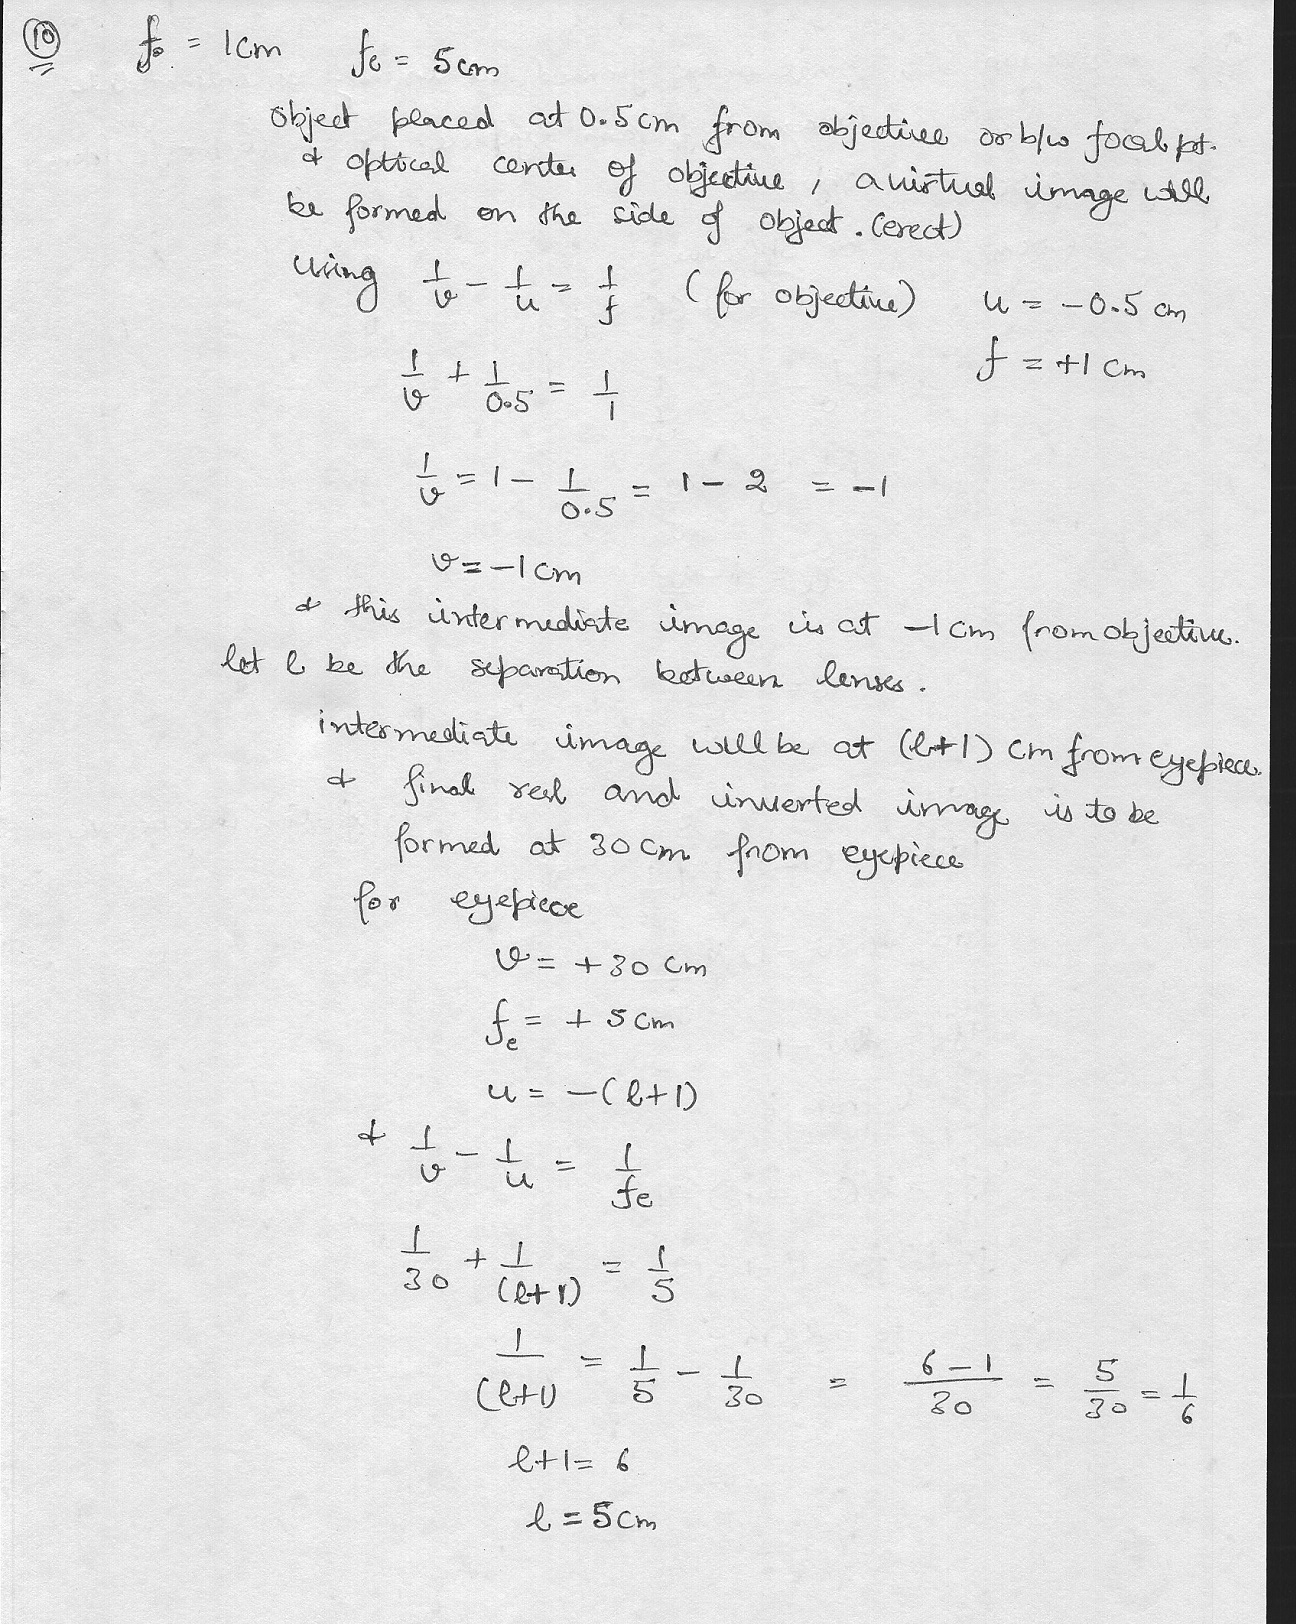 10 f₀ = 1cm fe = 5cm
object placed at 0.5cm from objective or b/w focal pt.
& optical center of objective, a virtual image will
be formed on the side of object. (erect)
using 1/v - 1/u = 1/f (for objective) u = -0.5 cm
f = +1 cm
1/v + 1/0.5 = 1/1
1/v = 1 - 1/0.5 = 1 - 2 = -1
v = -1cm
& this intermediate image is at -1cm from objective.
let l be the separation between lenses.
intermediate image will be at (l+1) cm from eyepiece.
& final real and inverted image is to be
formed at 30cm from eyepiece
for eyepiece
v = +30 cm
fe = +5cm
u = -(l+1)
& 1/v - 1/u = 1/fe
1/30 + 1/(l+1) = 1/5
1/(l+1) = 1/5 - 1/30 = (6-1)/30 = 5/30 = 1/6
l+1 = 6
l = 5cm